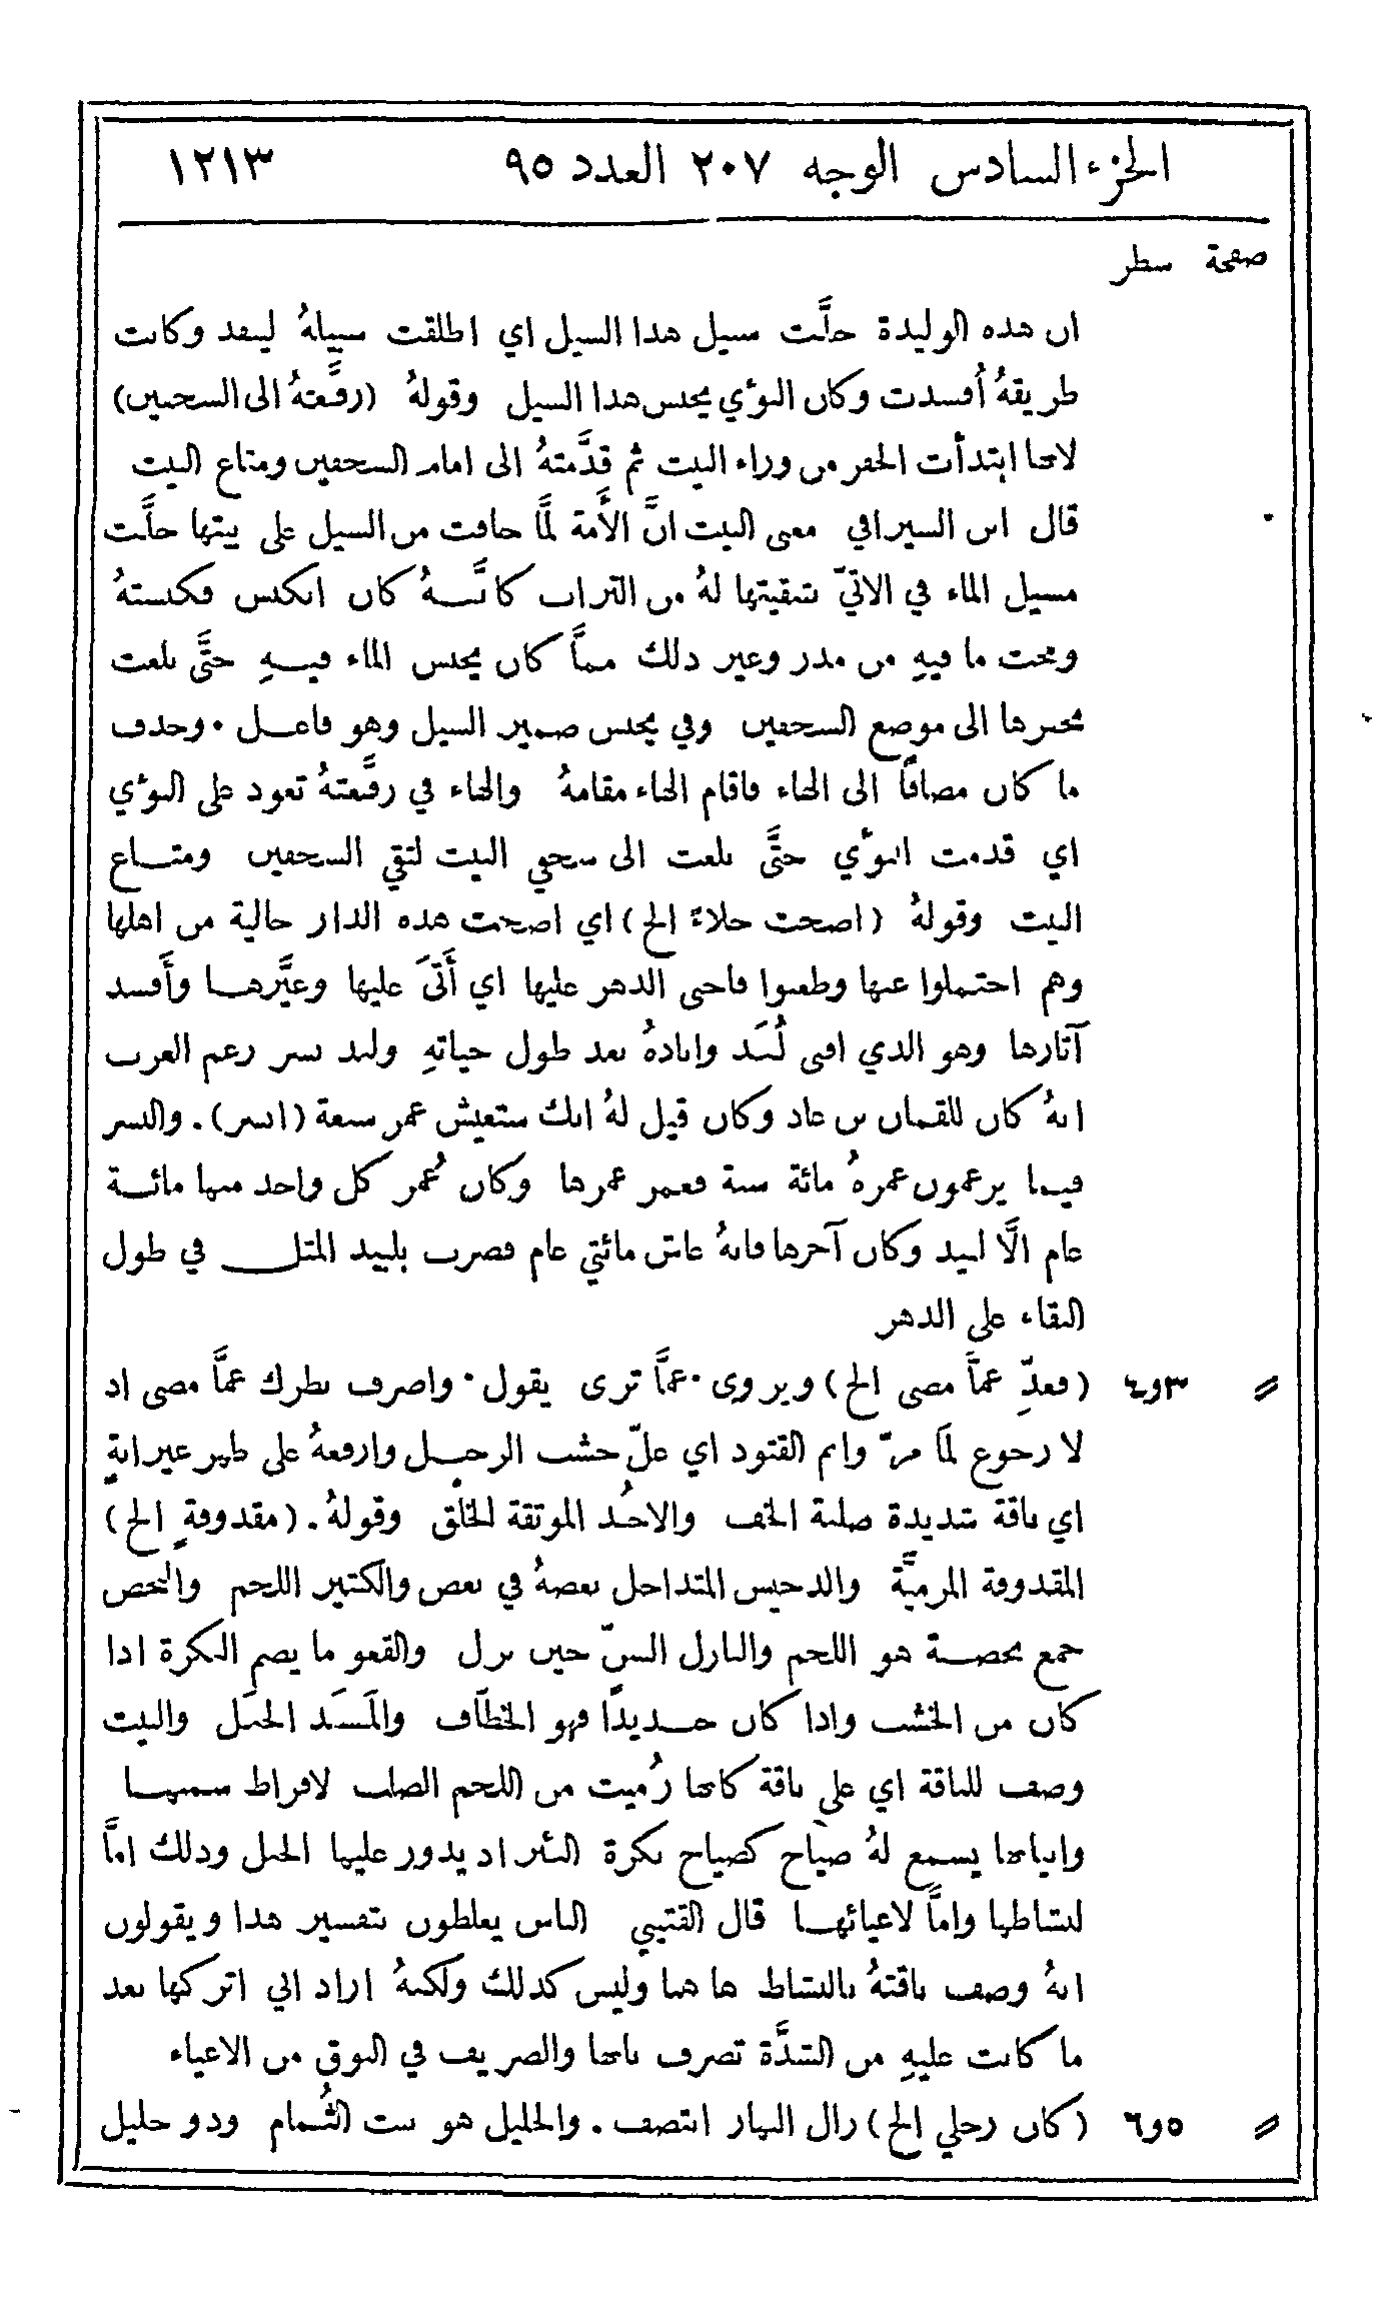 الجزء السادس الوجه ٢٠٧ العدد ٩٥ ١٢١٣
صفحة سطر
ان هذه الوليدة خلَّت سبيل هذا السيل اي اطلقت سبيلهُ لينفد وكانت
طريقهُ أُفسدت وكان النوءي يحبس هذا السيل وقولهُ (رفَّعتهُ الى السجفين)
لانها ابتدأت الحفر من وراء البيت ثم قدَّمتهُ الى امام السجفين ومتاع البيت
قال ابن السيرافي معنى البيت انَّ الأَمة لمَّا خافت من السيل على بيتها خلَّت
مسيل الماء في الاتيّ بتنقيتها لهُ من التراب كانَّــهُ كان انكبس فكنستهُ
ونحت ما فيهِ من مدر وغير ذلك ممَّا كان يحبس الماء فيــهِ حتَّى بلغت
بحفرها الى موضع السجفين وفي يحبس ضمير السيل وهو فاعــل. وحذف
ما كان مضافًا الى الهاء فاقام الهاء مقامهُ والهاء في رفَّعتهُ تعود على النوءي
اي قدمت النوءي حتَّى بلغت الى سجفي البيت لتقي السجفين ومتــاع
البيت وقولهُ (اضحت خلاءً الخ) اي اصبحت هذه الدار خالية من اهلها
وهم احتملوا عنها وظعنوا فاخنى الدهر عليها اي أَتَى عليها وغيَّرهــا وأَفسد
آثارها وهو الذي افنى لُبَد واباده بعد طول حياتهِ ولبد نسر زعم العرب
انهُ كان للقمان بن عاد وكان قيل لهُ انك ستعيش عمر سبعة (انسر). والنسر
فيما يزعمون عمرهُ مائة سنة فعمر عمرها وكان عُمر كل واحد منها مائــة
عام الَّا لبيد وكان آخرها فانهُ عاش مائتي عام فضرب بلبيد المثل في طول
البقاء على الدهر
〃 ٣و٤ (فعدِّ عمَّا مضى الخ) ويروى. عمَّا ترى يقول. واصرف نظرك عمَّا مضى اذ
لا رجوع لمَا مرّ وانم القتود اي علّ خشب الرحــل وارفعهُ على ظهر عيرانةٍ
اي ناقة شديدة صلبة الخف والاجُد الموثقة الخَلْق وقولهُ. (مقذوفةٍ الخ)
المقذوفة المرميَّة والدخيس المتداخل بعضهُ في بعض والكثير اللحم والنحض
جمع نحضــة هو اللحم والبازل السنّ حين بزل والقعو ما يضم البكرة اذا
كان من الخشب واذا كان حــديدًا فهو الخطَّاف والمَسَد الحبَل والبيت
وصف للناقة اي على ناقة كانها رُميت من اللحم الصلب لافراط سمنهــا
وانيابها يسمع لهُ صياح كصياح بكرة البئر اذ يدور عليها الحبل وذلك امَّا
لنشاطها وامَّا لاعيائهــا قال القتيبي الناس يغلطون بتفسير هذا ويقولون
انهُ وصف ناقتهُ بالنشاط ها هنا وليس كذلك ولكنهُ اراد اني اتركها بعد
ما كانت عليهِ من الشدَّة تصرف نابها والصريف في النوق من الاعياء
〃 ٥و٦ (كان رحلي الخ) زال النهار انتصف. والجليل هو نبت الثُّمام وذو جليل